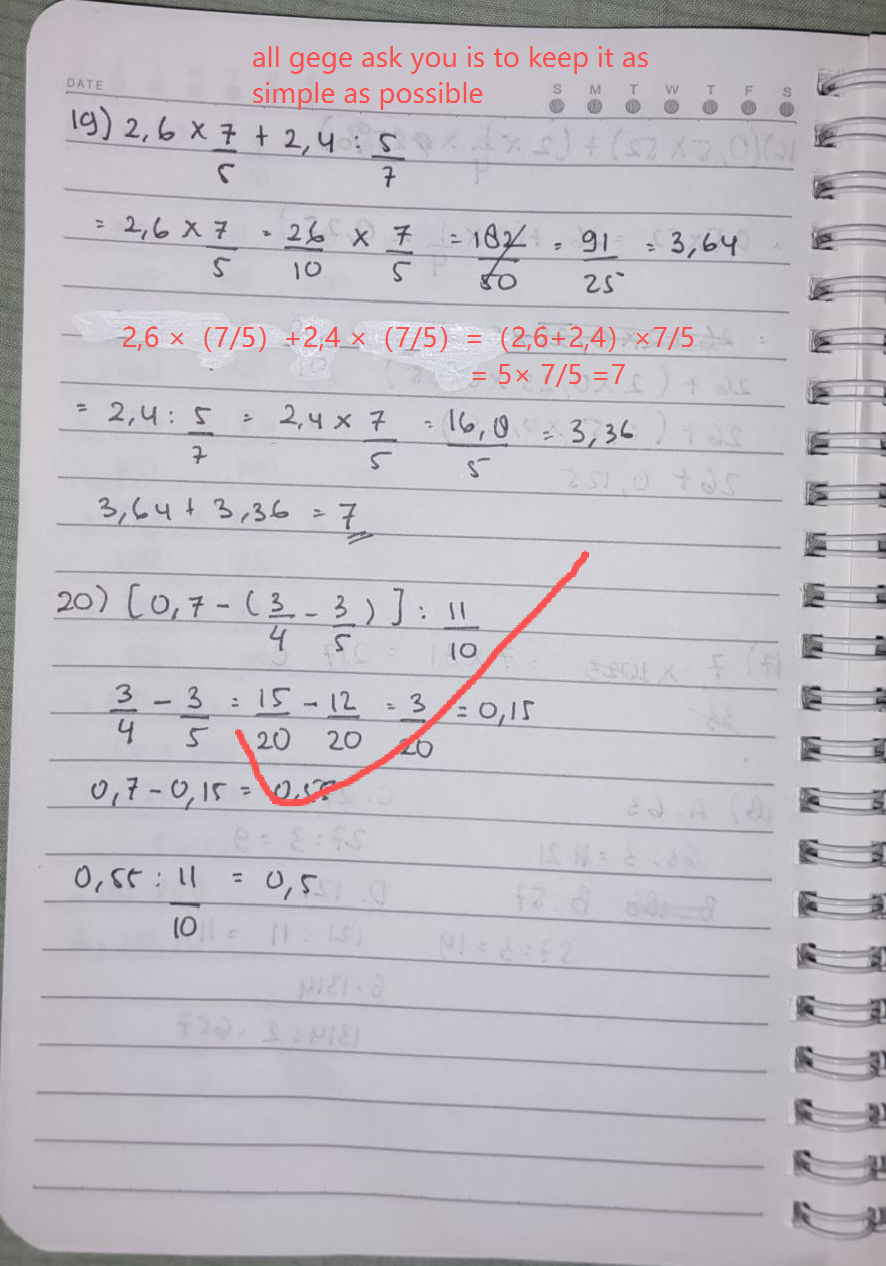 all gege ask you is to keep it as
simple as possible
DATE
S M T W T F S
19) 2,6 × 7/5 + 2,4 : 5/7
= 2,6 × 7/5 = 26/10 × 7/5 = 182/50 = 91/25 = 3,64
2,6 × (7/5) +2,4 × (7/5) = (2,6+2,4) ×7/5
= 5× 7/5 =7
= 2,4 : 5/7 = 2,4 × 7/5 = 16,8/5 = 3,36
3,64 + 3,36 = 7
20) [0,7 - (3/4 - 3/5)] : 11/10
3/4 - 3/5 = 15/20 - 12/20 = 3/20 = 0,15
0,7 - 0,15 = 0,55
0,55 : 11/10 = 0,5